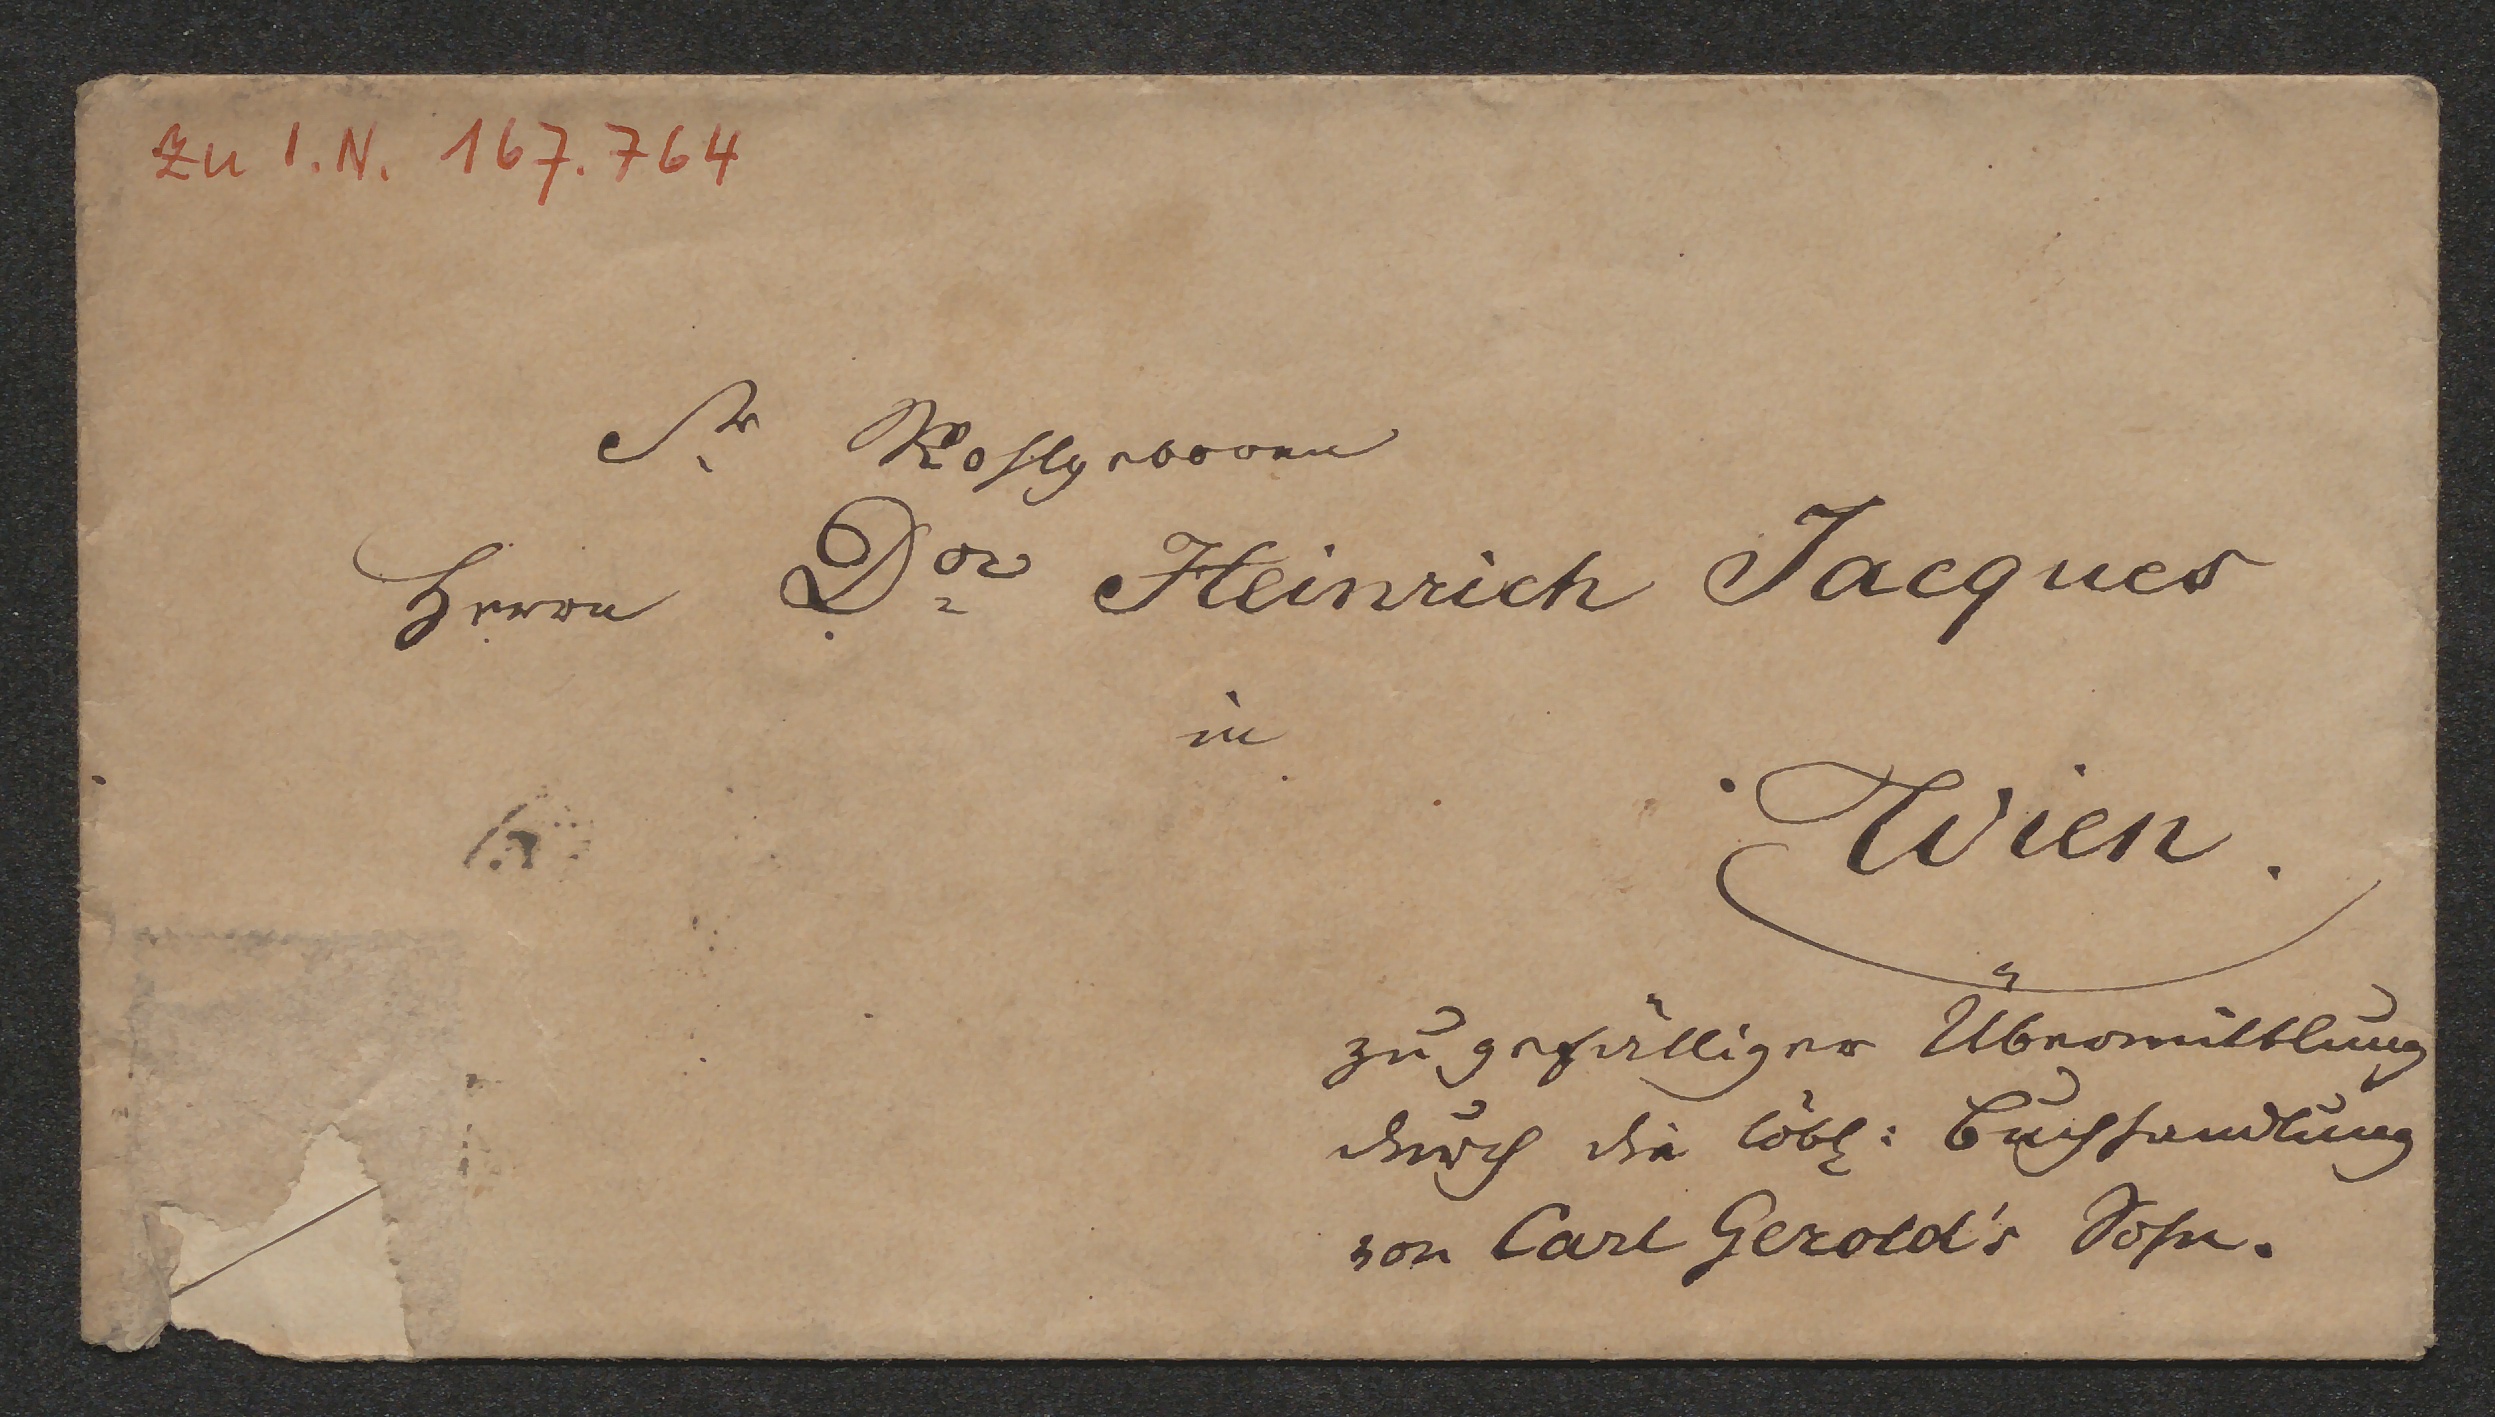 Zu I.N. 167.764
Sr Wohlgeboren
Herrn Dor Heinrich Jacques
in
Wien.
zu gefälliger Übermittlung
durch die löbl: Buchhandlung
von Carl Gerold's Sohn.